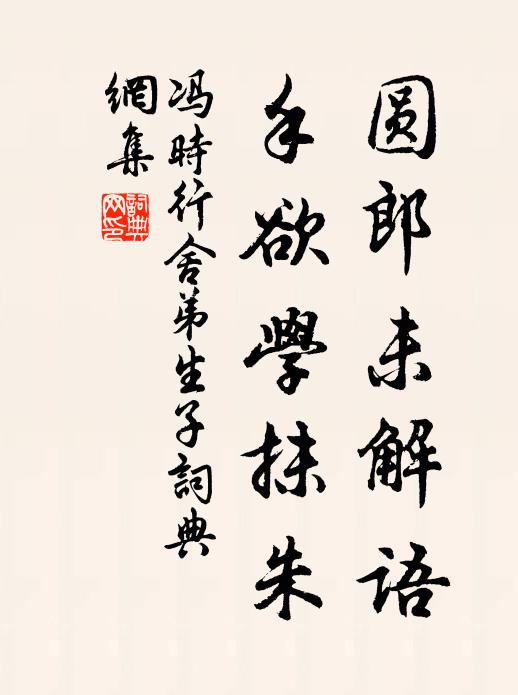 圆郎未解语
手欲學抹朱
冯時行舍弟生子詞典
網集
詞典网印